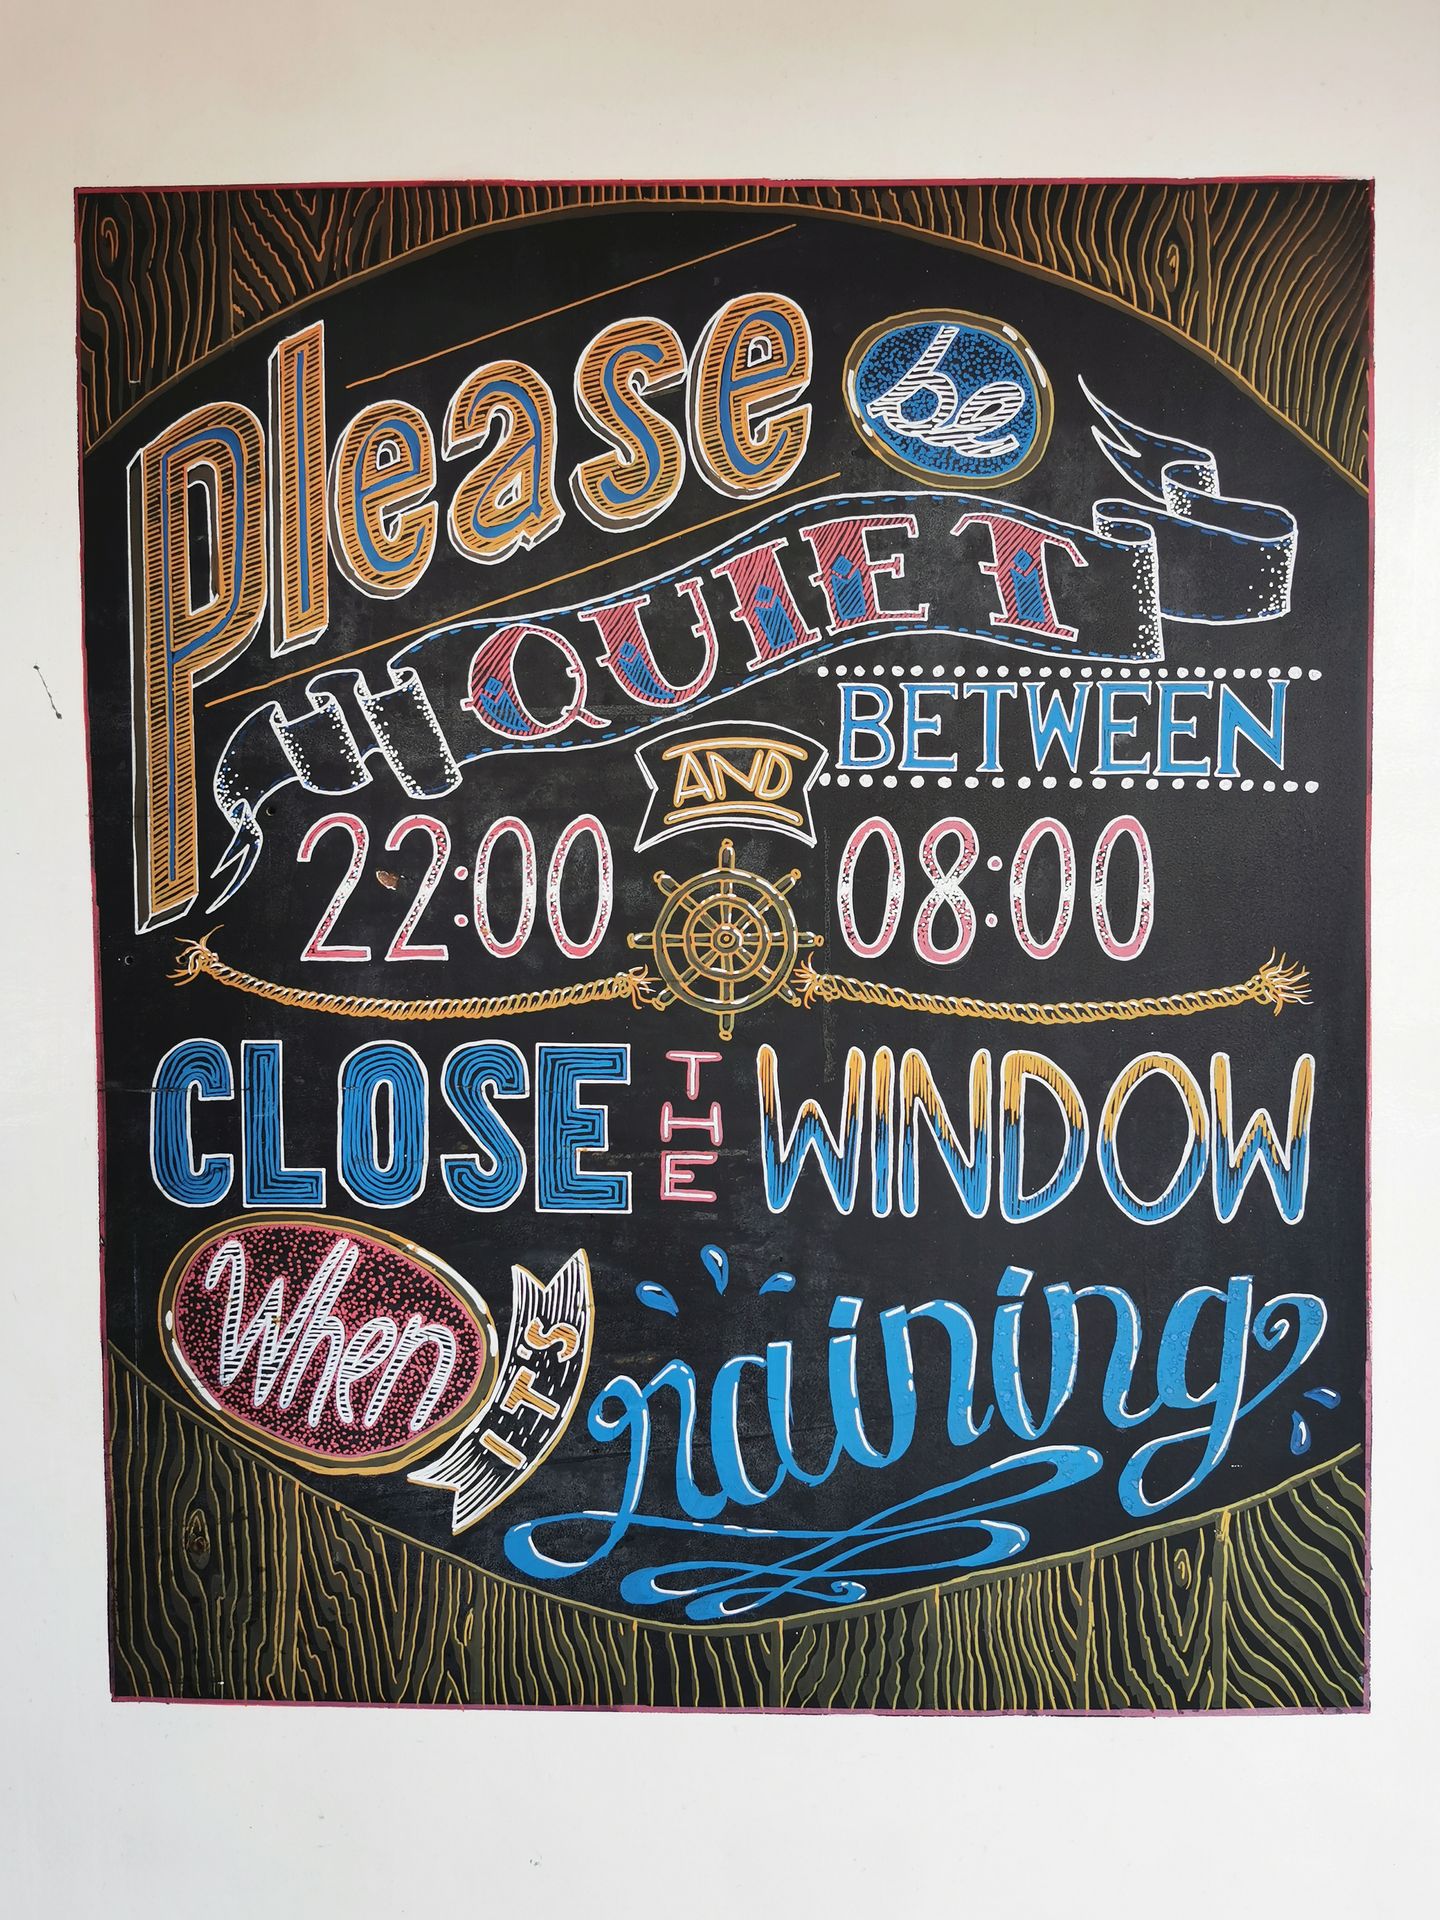 Please be
QUIET
BETWEEN
22:00 AND 08:00
CLOSE THE WINDOW
When IT'S raining